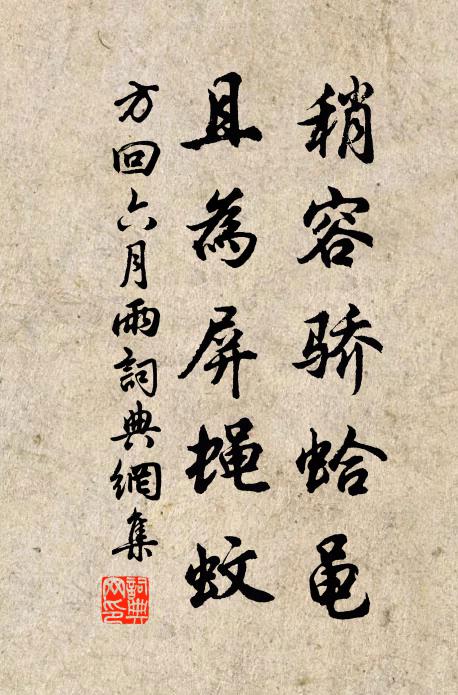 稍容骄蛤黾
且為屏蝇蚊
方回六月雨詞典網集
詞典